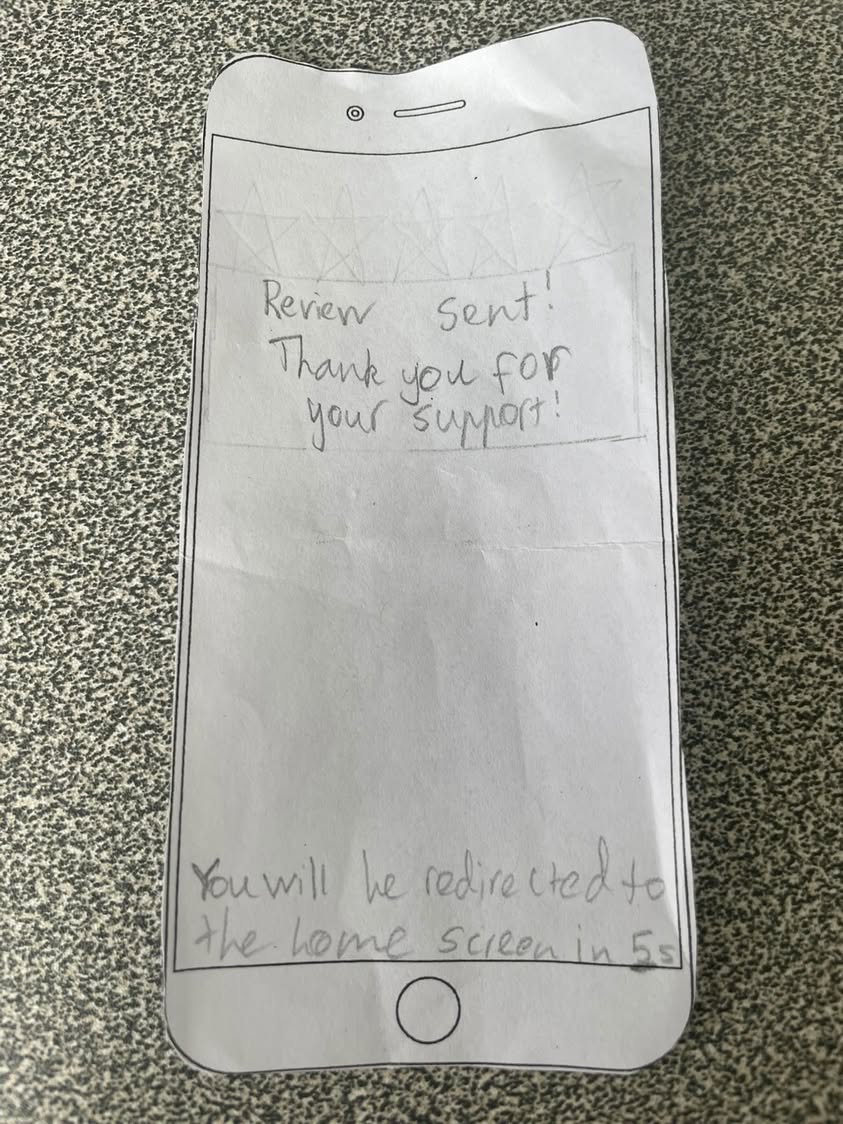 Review sent!
Thank you for
your support!
You will be redirected to
the home screen in 5s